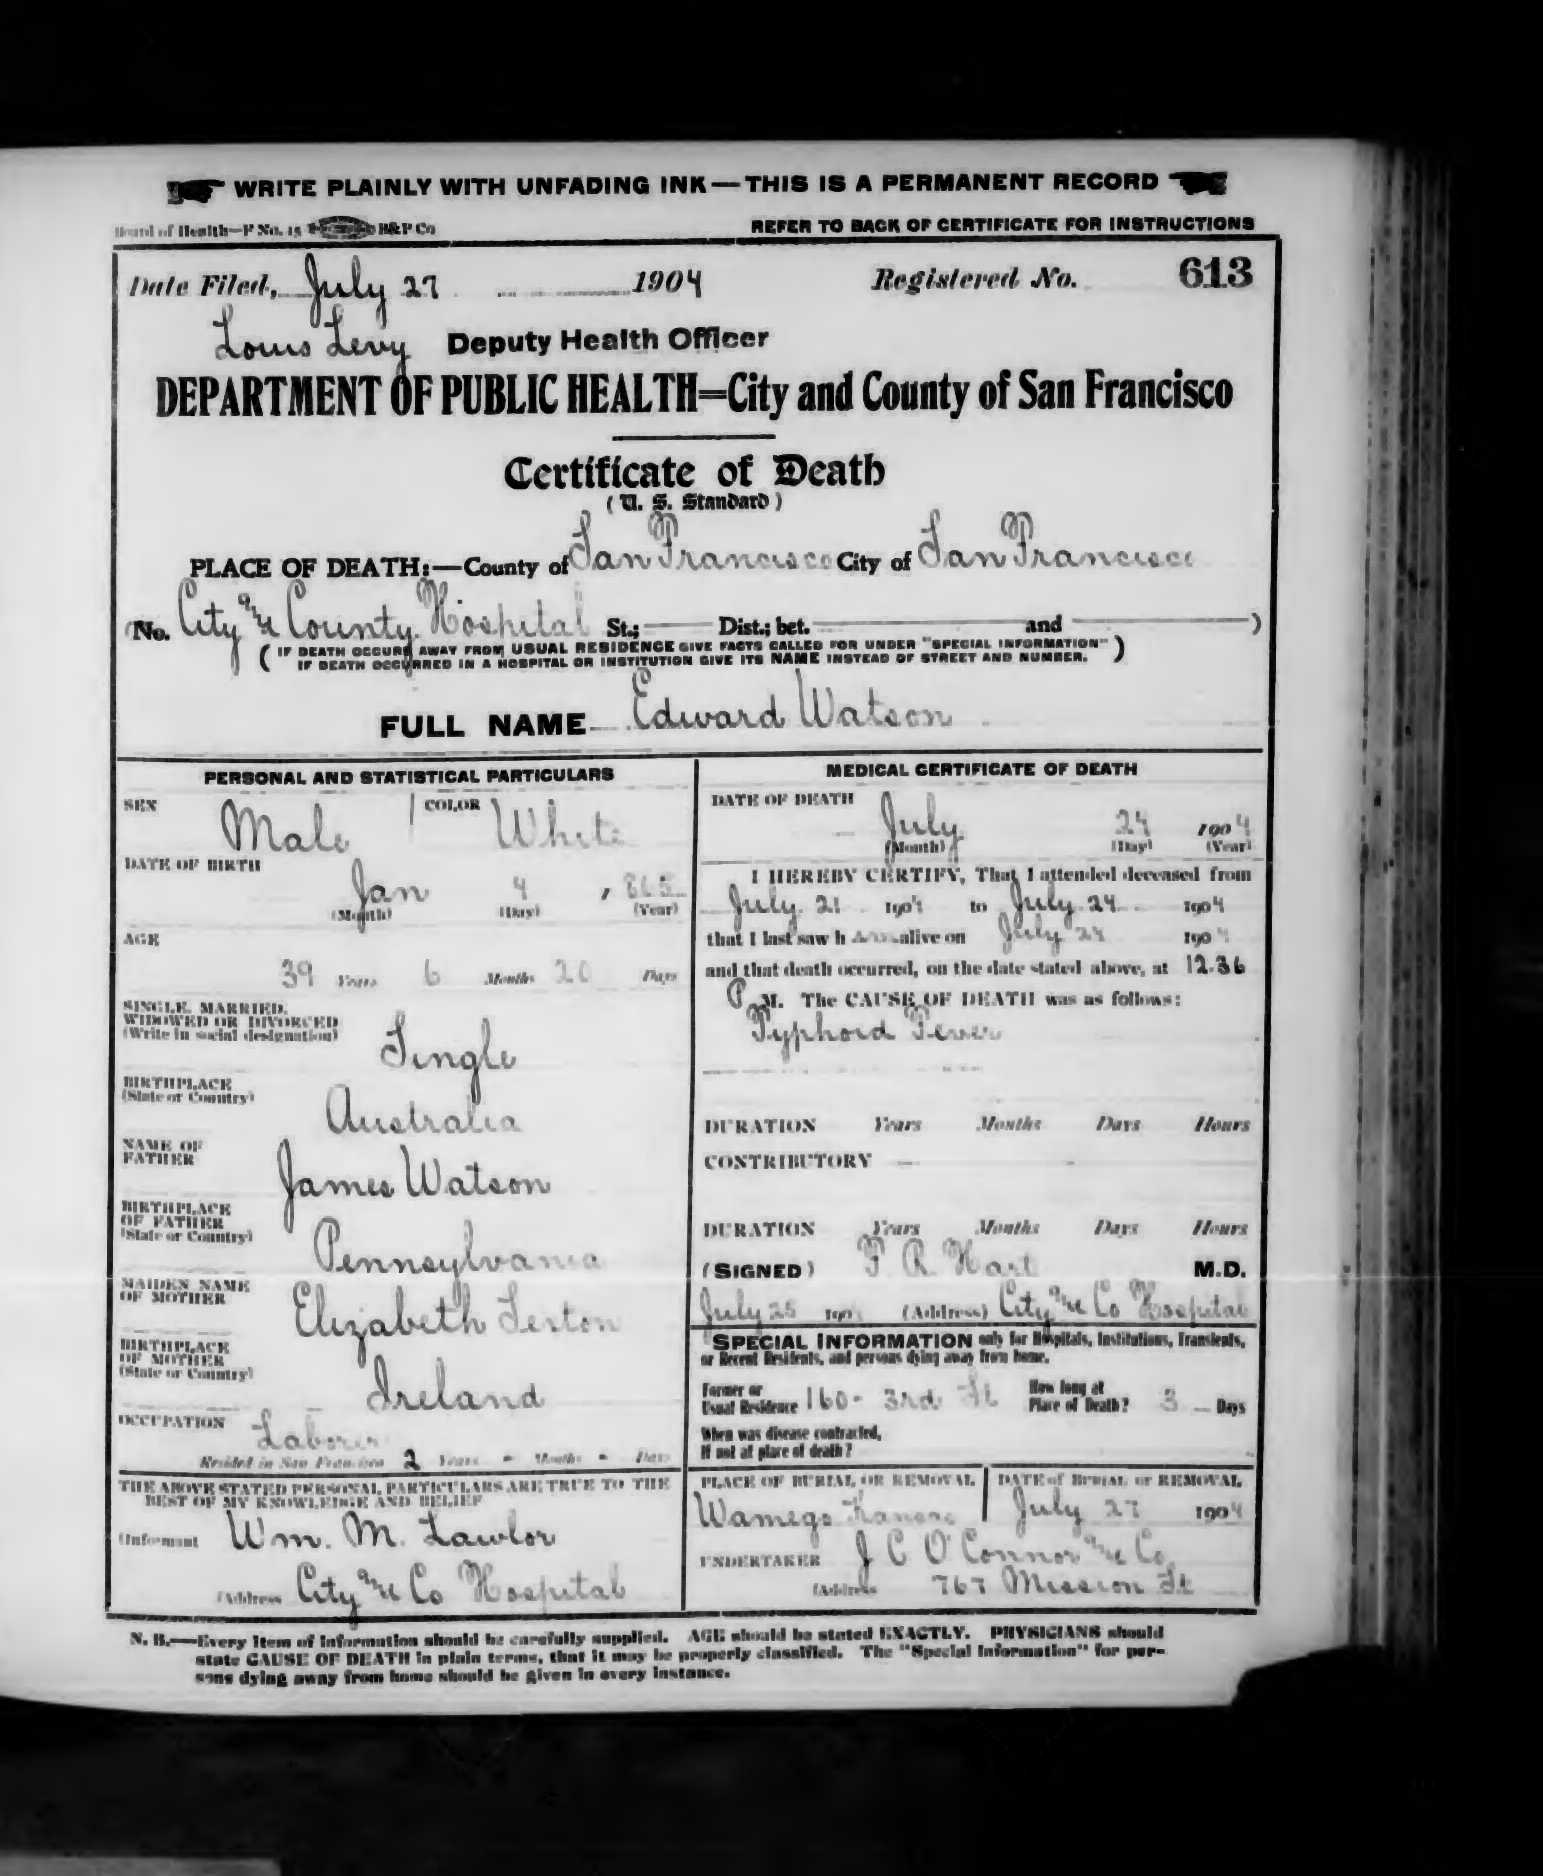 WRITE PLAINLY WITH UNFADING INK — THIS IS A PERMANENT RECORD
Board of Health—F No. 15 H&P Co REFER TO BACK OF CERTIFICATE FOR INSTRUCTIONS
Date Filed, July 27 1904 Registered No. 613
Louis Levy Deputy Health Officer
DEPARTMENT OF PUBLIC HEALTH=City and County of San Francisco
Certificate of Death
( U. S. Standard )
PLACE OF DEATH:—County of San Francisco City of San Francisco
(No. City and County Hospital St.; Dist.; bet. and )
( IF DEATH OCCURS AWAY FROM USUAL RESIDENCE GIVE FACTS CALLED FOR UNDER "SPECIAL INFORMATION"
IF DEATH OCCURRED IN A HOSPITAL OR INSTITUTION GIVE ITS NAME INSTEAD OF STREET AND NUMBER. )
FULL NAME Edward Watson
PERSONAL AND STATISTICAL PARTICULARS
SEX Male COLOR White
DATE OF BIRTH
Jan 4 , 865
(Month) (Day) (Year)
AGE
39 Years 6 Months 20 Days
SINGLE, MARRIED,
WIDOWED OR DIVORCED
(Write in social designation)
Single
BIRTHPLACE
(State or Country)
Australia
NAME OF
FATHER
James Watson
BIRTHPLACE
OF FATHER
(State or Country)
Pennsylvania
MAIDEN NAME
OF MOTHER
Elizabeth
BIRTHPLACE
OF MOTHER
(State or Country)
Ireland
OCCUPATION
Laborer
Resided in San Francisco 2 Years - Months - Days
THE ABOVE STATED PERSONAL PARTICULARS ARE TRUE TO THE
BEST OF MY KNOWLEDGE AND BELIEF
(Informant Wm. M. Lawlor
(Address City and Co Hospital
MEDICAL CERTIFICATE OF DEATH
DATE OF DEATH
July 24 1904
(Month) (Day) (Year)
I HEREBY CERTIFY, That I attended deceased from
July 21 1904 to July 24 1904
that I last saw h alive on July 24 1904
and that death occurred, on the date stated above, at 12.36
P M. The CAUSE OF DEATH was as follows:
Typhoid Fever
DURATION Years Months Days Hours
CONTRIBUTORY
DURATION Years Months Days Hours
(SIGNED) F R Hart M.D.
July 25 1904 (Address) City and Co Hospital
SPECIAL INFORMATION only for Hospitals, Institutions, Transients,
or Recent Residents, and persons dying away from home.
Former or
Usual Residence 160- 3rd St How long at
Place of Death? 3 Days
When was disease contracted,
If not at place of death?
PLACE OF BURIAL OR REMOVAL DATE of BURIAL or REMOVAL
Wamego Kansas July 27 1904
UNDERTAKER J C O'Connor and Co
(Address 767 Mission St
N. B.—Every item of information should be carefully supplied. AGE should be stated EXACTLY. PHYSICIANS should
state CAUSE OF DEATH in plain terms, that it may be properly classified. The "Special Information" for per-
sons dying away from home should be given in every instance.